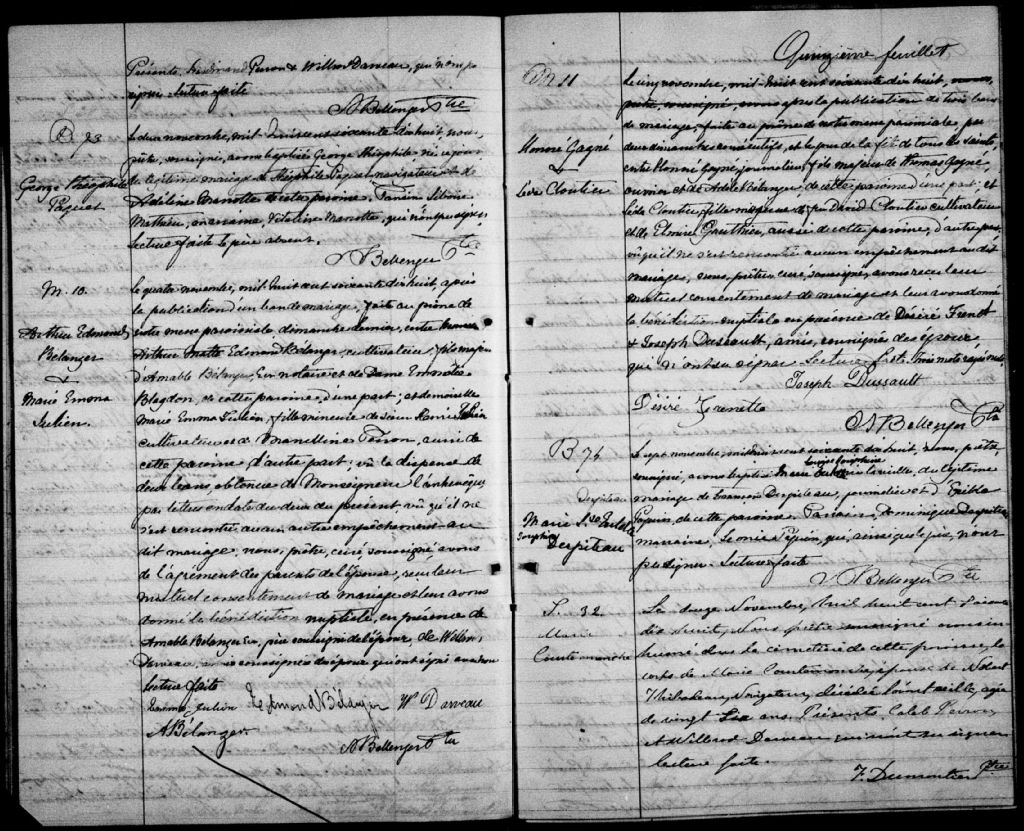 Présents, Ferdinand Perron & Wilbrod Darveau, qui n'ont pu
signer. Lecture faite
A Bellenger Ptre
B. 73
George Théophile
Paquet
Le deux novembre, mil huit cent soixante dix huit, nous,
prêtre, soussigné, avons baptisé George Théophile né ce jour,
du légitime mariage de Théophile Paquet navigateur et de
Adeline Marcotte de cette paroisse. Parrain
Mathieu, marraine, Marcotte, qui n'ont pu signer.
Lecture faite le père absent.
A Bellenger Ptre
M. 10.
Arthur Edmond
Bélanger
&
Marie Emma
Julien.
Le quatre novembre, mil huit cent soixante dix huit, après
la publication d'un ban de mariage, faite au prône de
notre messe paroissiale dimanche dernier, entre
Arthur Edmond Bélanger, cultivateur, fils majeur
d'Amable Bélanger, Ecr notaire et de Dame
de cette paroisse, d'une part; et demoiselle
Marie Emma Julien, fille mineure de Sieur Pierre Julien
cultivateur et de Marcelline Perron, aussi de
cette paroisse d'autre part; vu la dispense de
deux bans, obtenue de Monseigneur l'archevêque
par lettre en date du deux du présent vu qu'il ne
s'est rencontré aucun autre empêchement au
dit mariage, nous, prêtre, curé, soussigné avons
de l'agrément des parents de l'épouse, reçu leur
mutuel consentement de mariage et leur avons
donné la bénédiction nuptiale, en présence de
Amable Bélanger Ecr, père soussigné de l'époux, de Wilbrod
Darveau, ami soussigné de l'époux qui ont signé avec nous
Lecture faite
Emma Julien Edmond Bélanger W Darveau
A Bélanger
A Bellenger Ptre
Quinzième feuillet
M 11
Honoré Gagné
&
Léda Cloutier
Le cinq novembre, mil huit cent soixante dix huit, nous,
prêtre, soussigné, avons après la publication de trois bans
de mariage, faite au prône de notre messe paroissiale par
deux dimanches consécutifs, et le jour de la fête de tous les saints,
entre Honoré Gagné, journalier, fils majeur de Thomas Gagné,
ouvrier et de Adèle Bélanger, de cette paroisse d'une part; et
Léda Cloutier, fille mineure de feu David Cloutier cultivateur
et de Elmire Gauthier, aussi de cette paroisse, d'autre part,
vu qu'il ne s'est rencontré aucun empêchement au dit
mariage, nous, prêtre curé, soussigné, avons reçu leur
mutuel consentement de mariage et leur avons donné
la bénédiction nuptiale en présence de Désiré Frenette
& Joseph Dussault, amis, soussignés des époux
qui n'ont su signer Lecture faite. Trois mots rayés nuls
Joseph Dussault
Désiré Frenette
A Bellenger Ptre
B 74
Despiteau
Marie Lse
Josephine
Despiteau
Le sept novembre, mil huit cent soixante dix huit, nous, prêtre,
Louise Josephine
soussigné, avons baptisé Marie née la veille, du légitime
mariage de François Despiteau, journalier et d'
Papuin, de cette paroisse Parrain, Dominique Despiteau
marraine, Léonie Pépin, qui, ainsi que le père, n'ont
pu signer. Lecture faite
A Bellenger Ptre
S. 32
Marie
Courtemanche
Le douze Novembre, mil huit cent soixante
dix huit, Nous prêtre soussigné avons in-
humé dans le cimetière de cette paroisse, le
corps de Marie Courtemanche, épouse de
Thibodeau, Navigateur, décédée l'avant veille, agée
de vingt six ans. Présents Caleb Perron
& Wilbrod Darveau qui n'ont su signer
lecture faite.
F. Dumontier Ptre